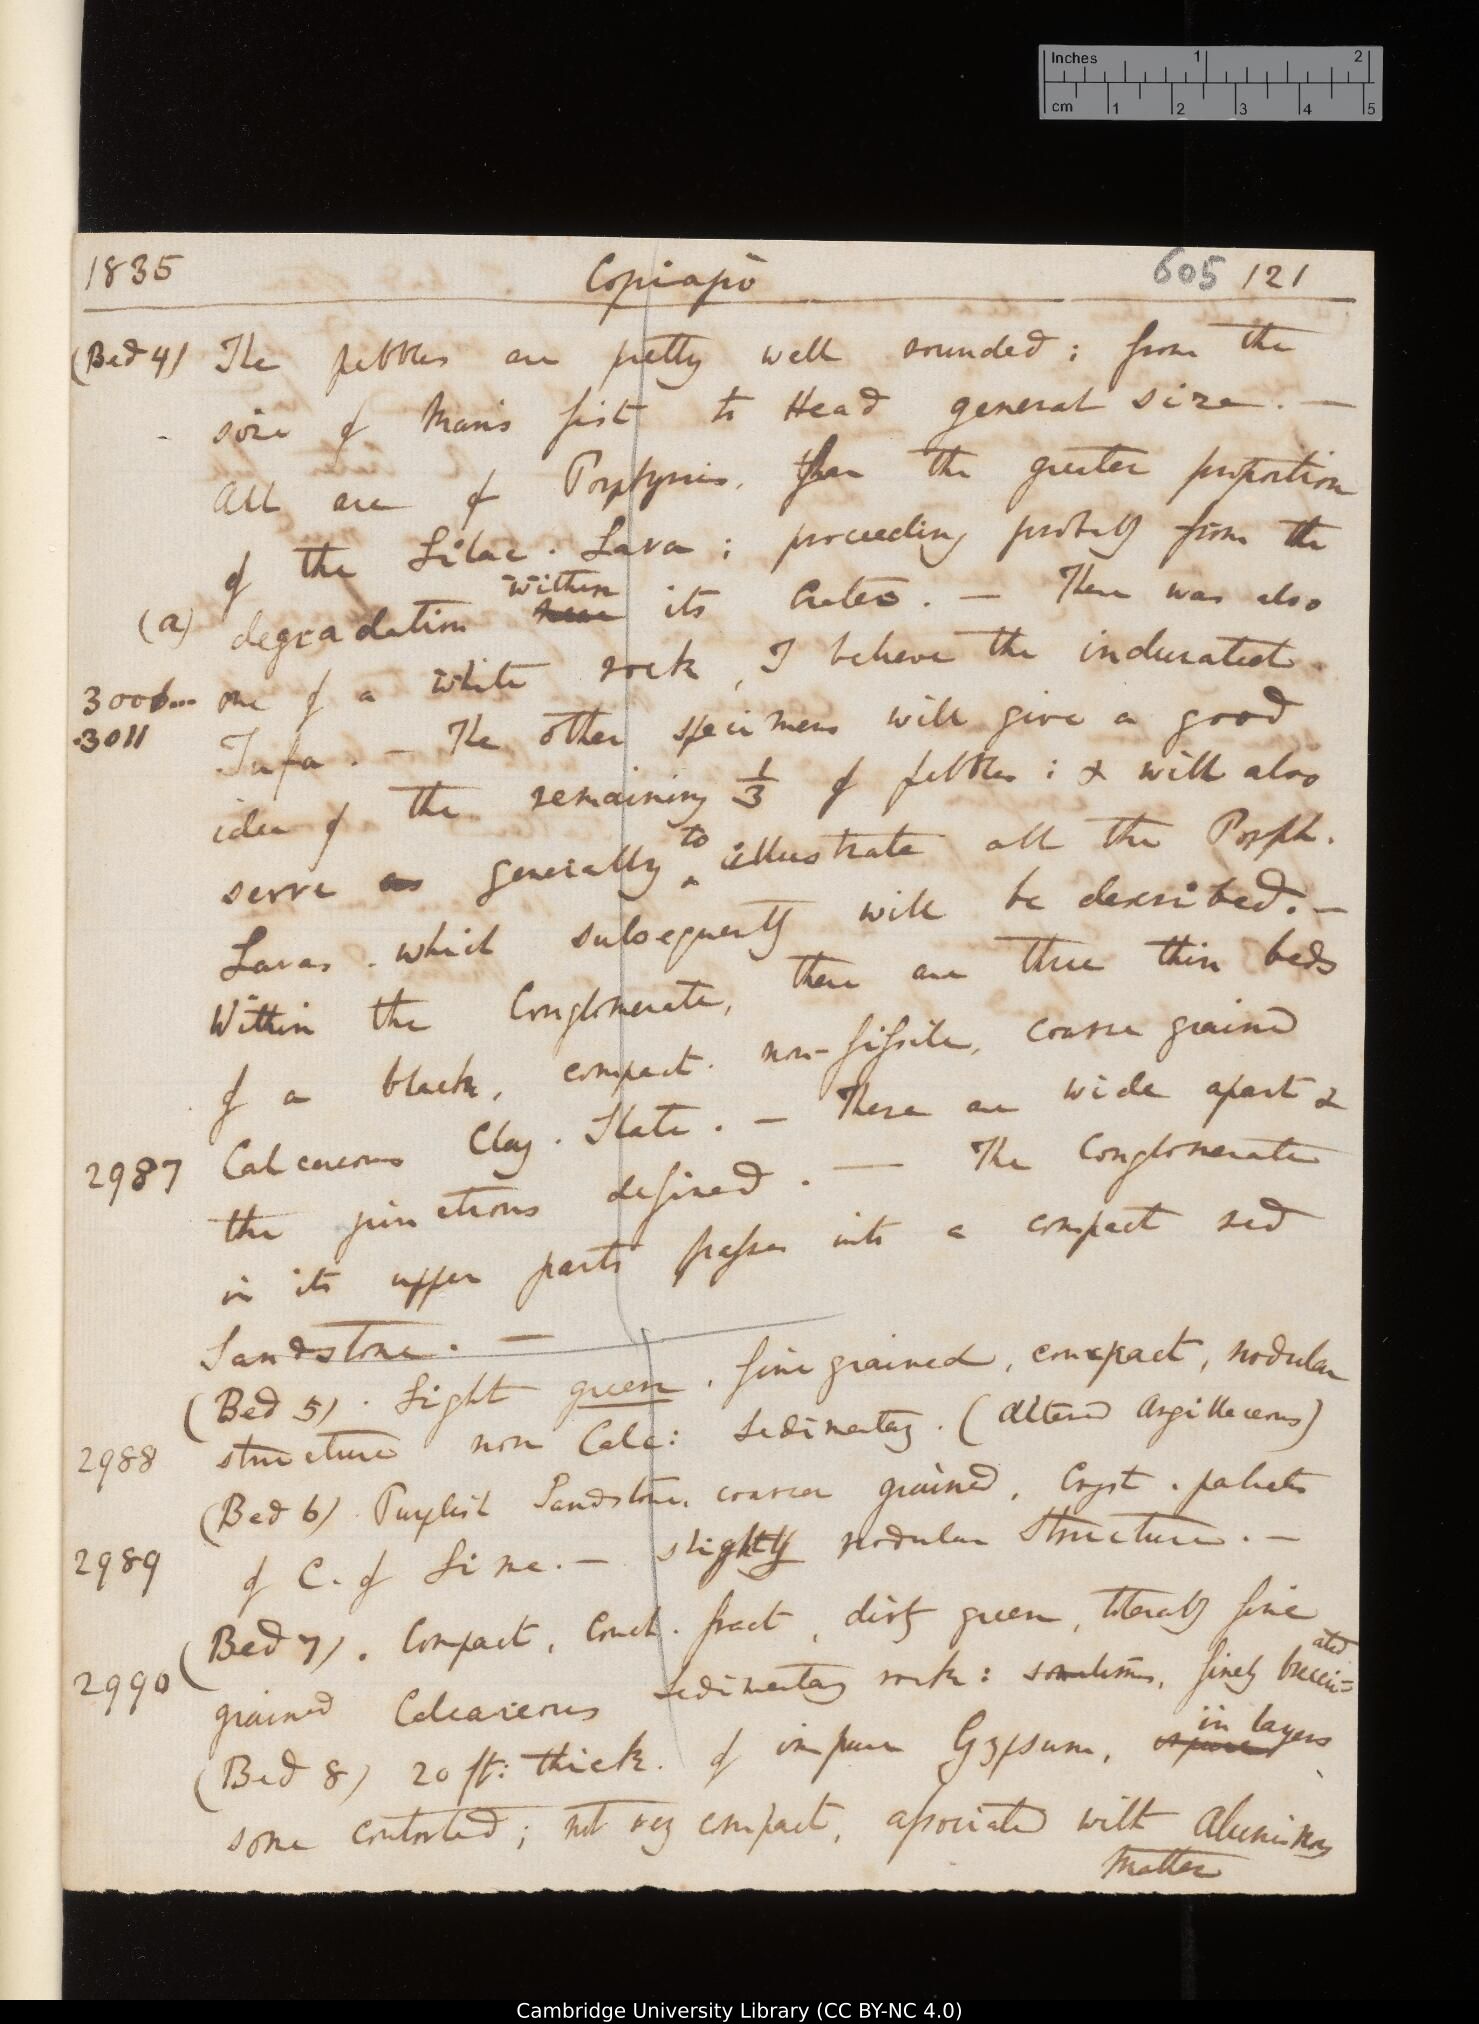 Inches 1 2
cm 1 2 3 4 5
1835 Copiapò 605 121
(Bed 4) The pebbles are pretty well rounded; from the
size of Man's fist to Head general size. —
All are of Porphyries, the greater proportion
of the Lilac. Lava; proceeding probably from the
within
(a) degradation near its Crater. — There was also
3006... one of a white rock, I believe the indurated
3011 Tufa. — The other specimens will give a good
idea of the remaining 1/3 of pebbles: & will also
to
serve as generally ^ illustrate all the Porph.
Lavas. which subsequently will be described. —
Within the Conglomerate, there are three thin beds
of a black, compact. non-fissile, coarse grained
2987 Calcareous Clay. Slate. — These are wide apart &
the junctions defined. — The Conglomerate
in its upper parts passes into a compact red
Sandstone. —
(Bed 5). Light green, fine grained, compact, nodular
2988 structure non Calc: Sedimentary. (altered Argillaceous)
(Bed 6) Purplish Sandstone. coarser grained, Cryst. particles
2989 of C. of Lime. — slightly nodular Structure. —
(Bed 7). Compact, Conch. fract, dirty green, tolerably fine
ated
2990 grained Calcareous sedimentary rock: sometimes, finely brecci=
in layers
(Bed 8) 20 ft: thick. of impure Gypsum,
some contorted; not very compact, associated with Aluminous
Matter
Cambridge University Library (CC BY-NC 4.0)